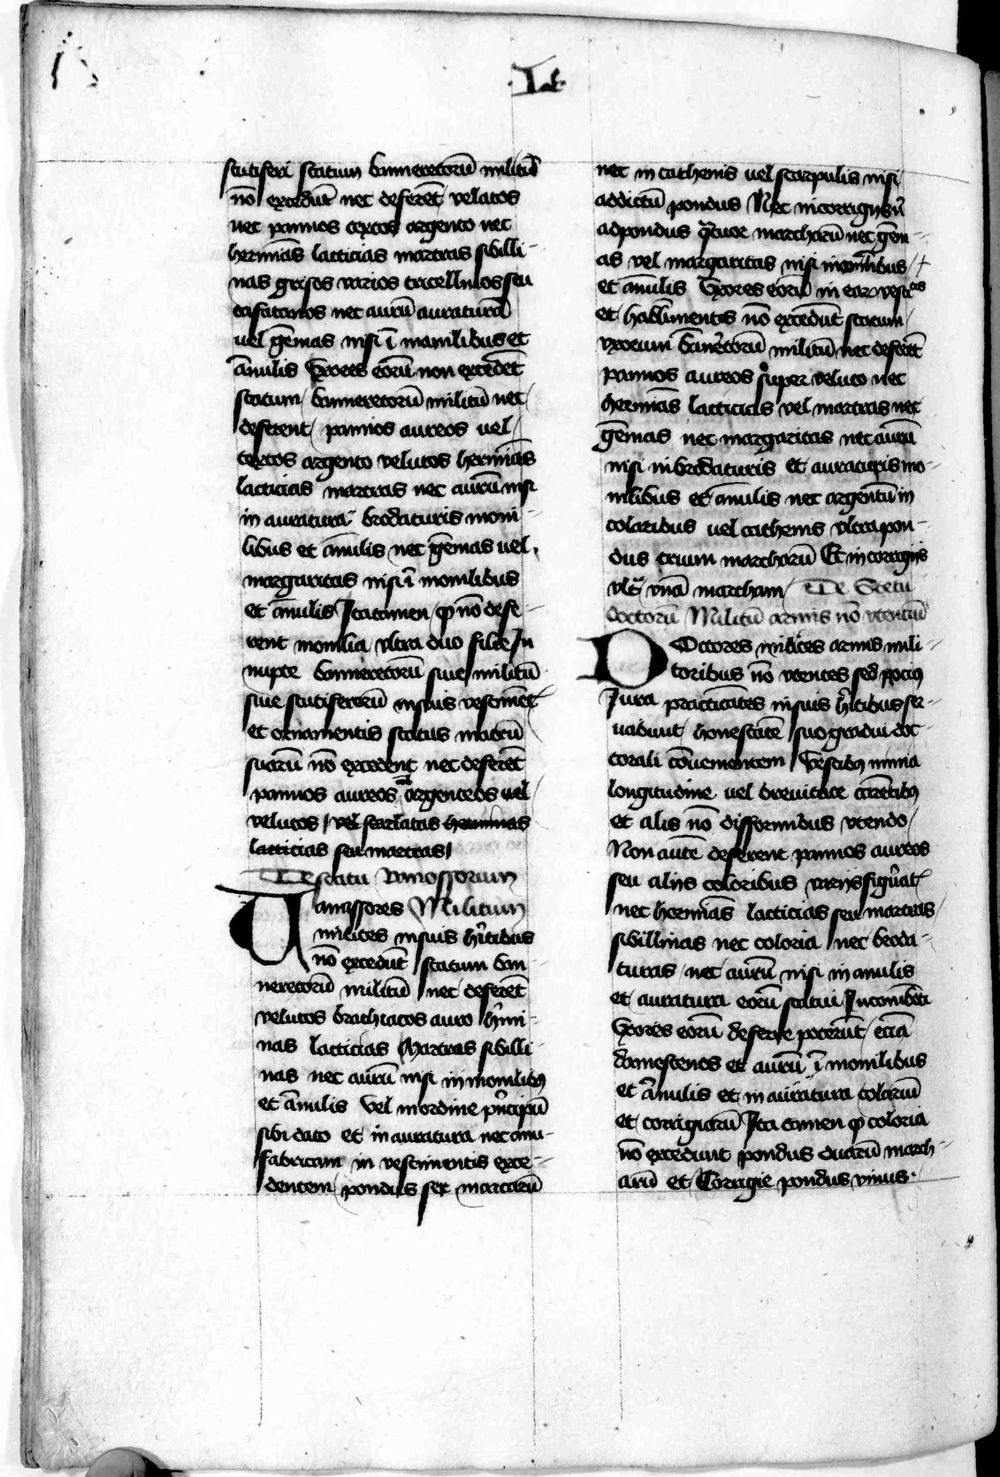 scutiferi statum banneretorū militū
nō excedūt nec deferēt velutos
nec pannos textos argento nec
herminas lacticias martras sibilli-
nas grisos varios tacellinos seu
nec aurū auraturā
uel gēmas nisi ī monilibus et
ānulis Vxores eorū non excedēt
statum banneretorū militū nec
deferent pannos aureos uel
textos argento velutos herminās
lacticias martras nec aurū nisi
in auratura brodaturis moni-
libus et ānulis nec gēmas uel
margaritas nisi ī monilibus
et ānulis Ita tamen ꝙ nō defe-
rent monilia vltra duo filie In
nupte banneretorū siue militū
siue scutiferorū in suis vestimēt
et ornamentis status matrū
suarū nō excedent nec deferēt
pannos aureos argenteos uel
velutos vel scarlatas herminas
lacticias seu martras
De statu Vauassorum
Vauassores Militum
milites in suis hītibus
nō excedūt statum ban-
neretorū militū nec deferēt
velutos brachiatos auro hīmi-
nas lacticias Martras sibilli-
nas nec aurū nisi in monilibꝫ
et ānulis vel in ordine pīncipū
sibi dato et in auratura nec
fabricam in vestimentis exce-
dentem pondus sex marcarū
nec in cathenis uel scarpulis nisi
addictū pondus Nec in corrigiis
ad pondus marcharū nec gēm-
as vel margaritas nisi in monilibus
et ānulis Vxores eorū in eorum vestibus
et habilimentis nō excedūt statum
vxorum bannetorū militū nec deferēt
pannos aureos super veluto nec
herminās lacticias vel martras nec
gēmas nec margaritas nec aurū
nisi in brodaturis et auraturis mo-
nilibus et ānulis nec argentū in
coloribus uel cathenis vltra pon-
dus trium marcharū Et in corrigiis
vltā vnā marcham De Statu
doctorū Militū armis nō vtentiū
Doctores milites armis mili-
toribus nō vtentes sed pocius
Iura practicātes in suis hītibus ser-
uabunt honestatē suo gradui doc-
torali cōuenientem Vestibꝫ nimia
longitudine uel breuitate cārētibꝫ
et aliis nō difformibus vtendo
Non autē deferent pannos aureos
seu aliis coloribus variis figūat
nec herminas lacticias seu martras
sibillinas nec coloria nec broda-
turas nec aurū nisi in anulis
et auratura eorū statui
Vxores eorū deferre poterūt eciā
damascenos et aurū ī monilibus
et ānulis et in auratura colariū
et corrigiarū Ita tamen ꝙ coloria
nō excedunt pondus duarū march-
arū et Corrigie pondus vnius.